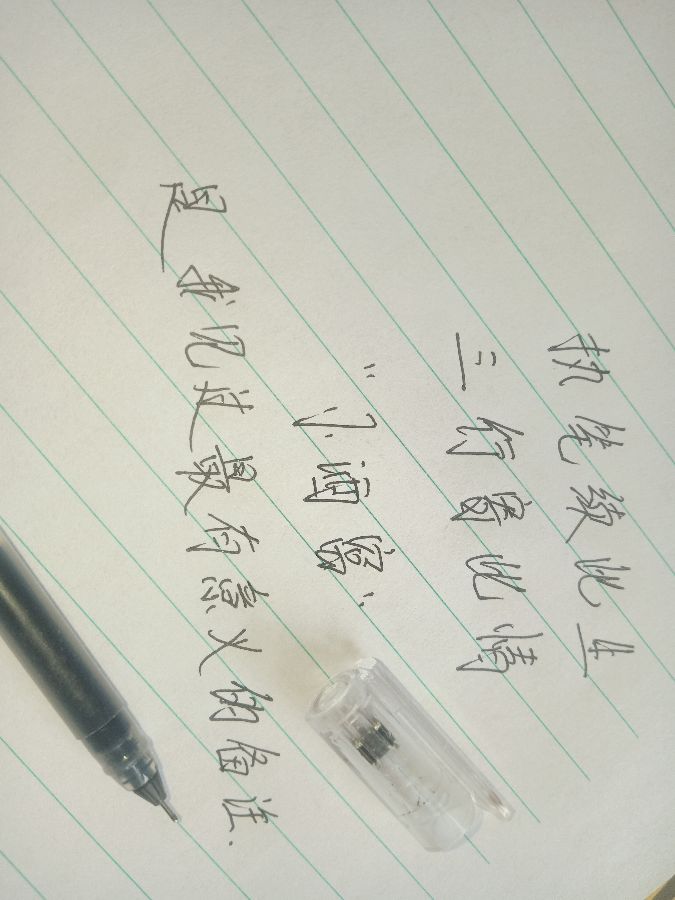 执笔续此生
三行此情
"小酒窝"
是我见过最有意义的备注.